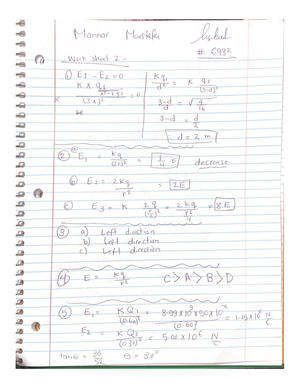 Mannar Moustafa
# 6932
Work sheet 2 :-
① E1 - E2 = 0
(3.x)²
Kq1/d² = K q2/(3-d)²
3-d/d = √4/16
3-d = d/2
d = 2 m
② ⓐ E1 = Kq/(2r)² = 1/4 E decrease
ⓑ E2 = 2Kq/r² = 2E
ⓒ E3 = K 2q/(r/2)² = 2Kq/r²/4 = 8E
③ a) Left direction
b) Left direction
c) Left direction
④ E = Kq/r² C > A > B > D
⑤ E1 = KQ1/(0.60)² = 8.99x10⁹
E2 = KQ2/(0.30)² = 5.00 x 10⁵ N/C
tan θ = θ = 30°